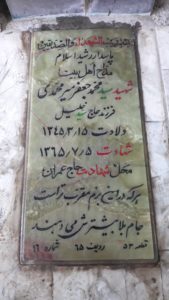 بسم رب الشهداء و الصدیقین
پاسدار رشید اسلام
مداح اهل بیت
شهید سید محمد جعفر میرمحمدی
فرزند حاج سید خلیل
ولادت ۱۳۴۵/۳/۱۵
شهادت ۱۳۶۵/۷/۵
محل شهادت حاج عمران
هرکه در این بزم مقرب تر است
جام بلا بیشترش می دهند
قطعه ۵۳ ردیف ۶۵ شماره ۱۶